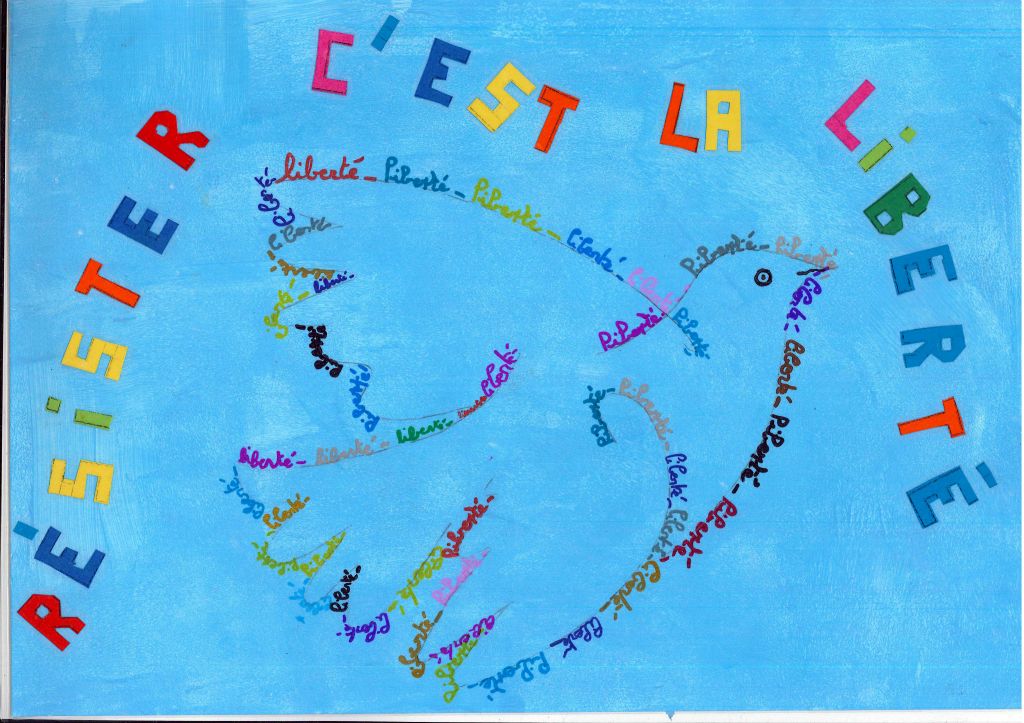 RÉSiSTER C'EST LA LiBERTÉ
liberté - liberté - liberté - liberté - liberté - liberté
liberté
liberté
liberté
liberté - liberté
liberté
liberté
liberté - liberté - liberté
liberté
liberté - liberté - liberté
liberté - liberté - liberté - liberté - liberté - liberté - liberté - liberté
liberté - liberté - liberté - liberté
liberté
liberté
liberté
liberté
liberté
liberté
liberté
liberté
liberté